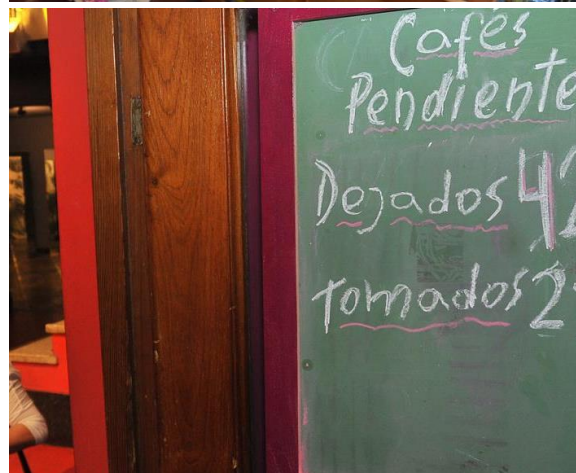 Cafés
Pendiente
Dejados 42
tomados 2